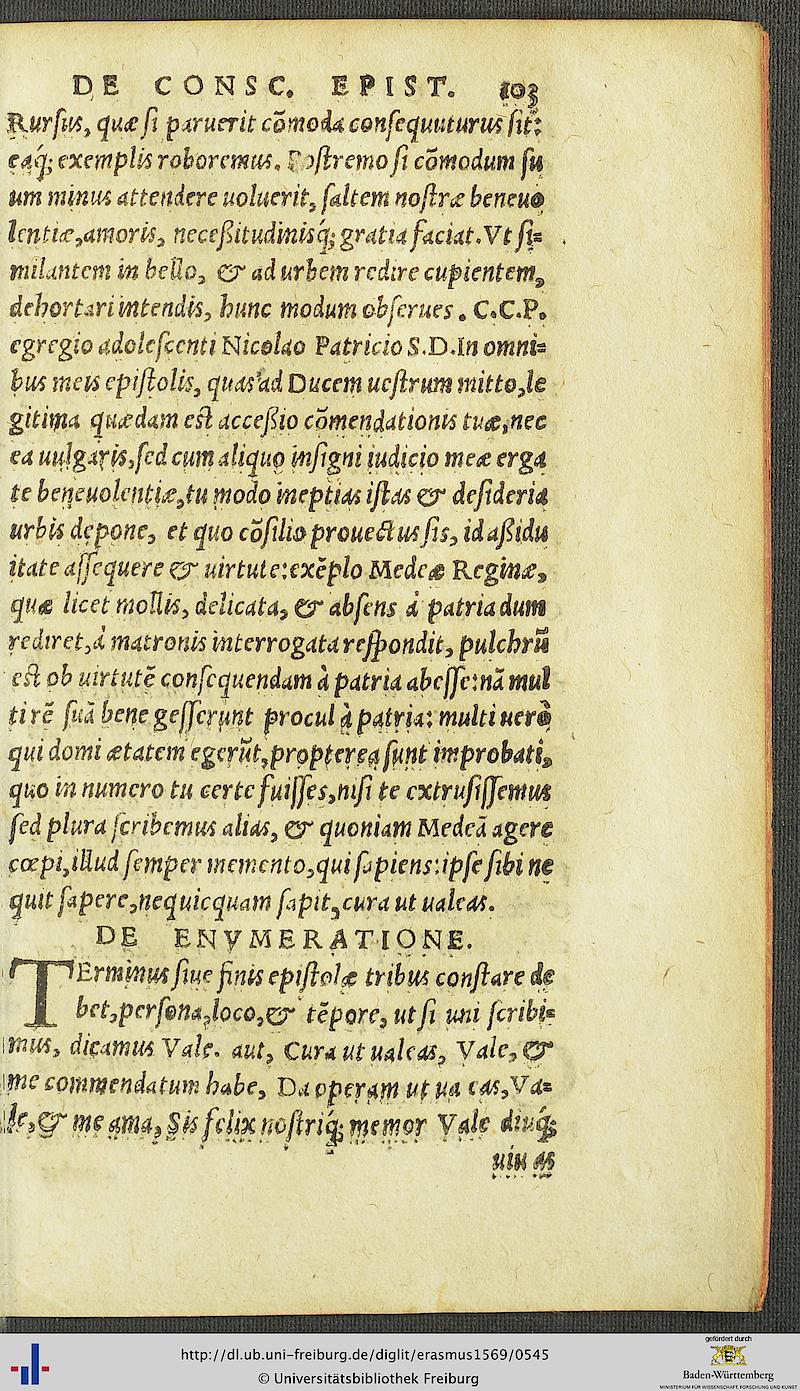 DE CONSC. EPIST. 103
Rursus, quæ si paruerit cõmoda consequuturus sit:
eaq́; exemplis roboremus. Postremo si cõmodum su
um minus attendere uoluerit, saltem nostræ beneuo
lentiæ, amoris, neceßitudinisq́; gratia faciat. Vt si=
militantem in bello, & ad urbem redire cupientem,
dehortari intendis, hunc modum obserues. C.C.P.
egregio adolescenti Nicolao Patricio S.D. In omni=
bus meis epistolis, quas ad Ducem uestrum mitto, le
gitima quædam est acceßio cõmendationis tuæ, nec
ea uulgaris, sed cum aliquo insigni iudicio meæ erga
te beneuolentiæ, tu modo ineptias istas & desideria
urbis depone, et quo cõsilio prouectus sis, id aßidu
itate assequere & uirtute: exẽplo Medeæ Reginæ,
quæ licet mollis, delicata, & absens à patria dum
rediret, à matronis interrogata respondit, pulchrũ
est ob uirtutẽ consequendam à patria abesse: nã mul
ti rẽ suã bene gesserunt procul à patria: multi uerò
qui domi ætatem egerũt, propterea sunt improbati,
quo in numero tu certe fuisses, nisi te extrusissemus
sed plura scribemus alias, & quoniam Medeã agere
cœpi, illud semper memento, qui sapiens: ipse sibi ne
quit sapere, nequicquam sapit, cura ut ualeas.
DE ENVMERATIONE.
TErminus siue finis epistolæ tribus constare de
bet, persona, loco, & tẽpore, ut si uni scribi=
mus, dicamus Vale. aut, Cura ut ualeas, Vale, &
me commendatum habe, Da operam ut ua eas, Va=
le, & me ama, Sis felix nostriq́; memor Vale diuq́;
uiu as
http://dl.ub.uni-freiburg.de/diglit/erasmus1569/0545
© Universitätsbibliothek Freiburg
gefördert durch
Baden-Württemberg
MINISTERIUM FÜR WISSENSCHAFT, FORSCHUNG UND KUNST